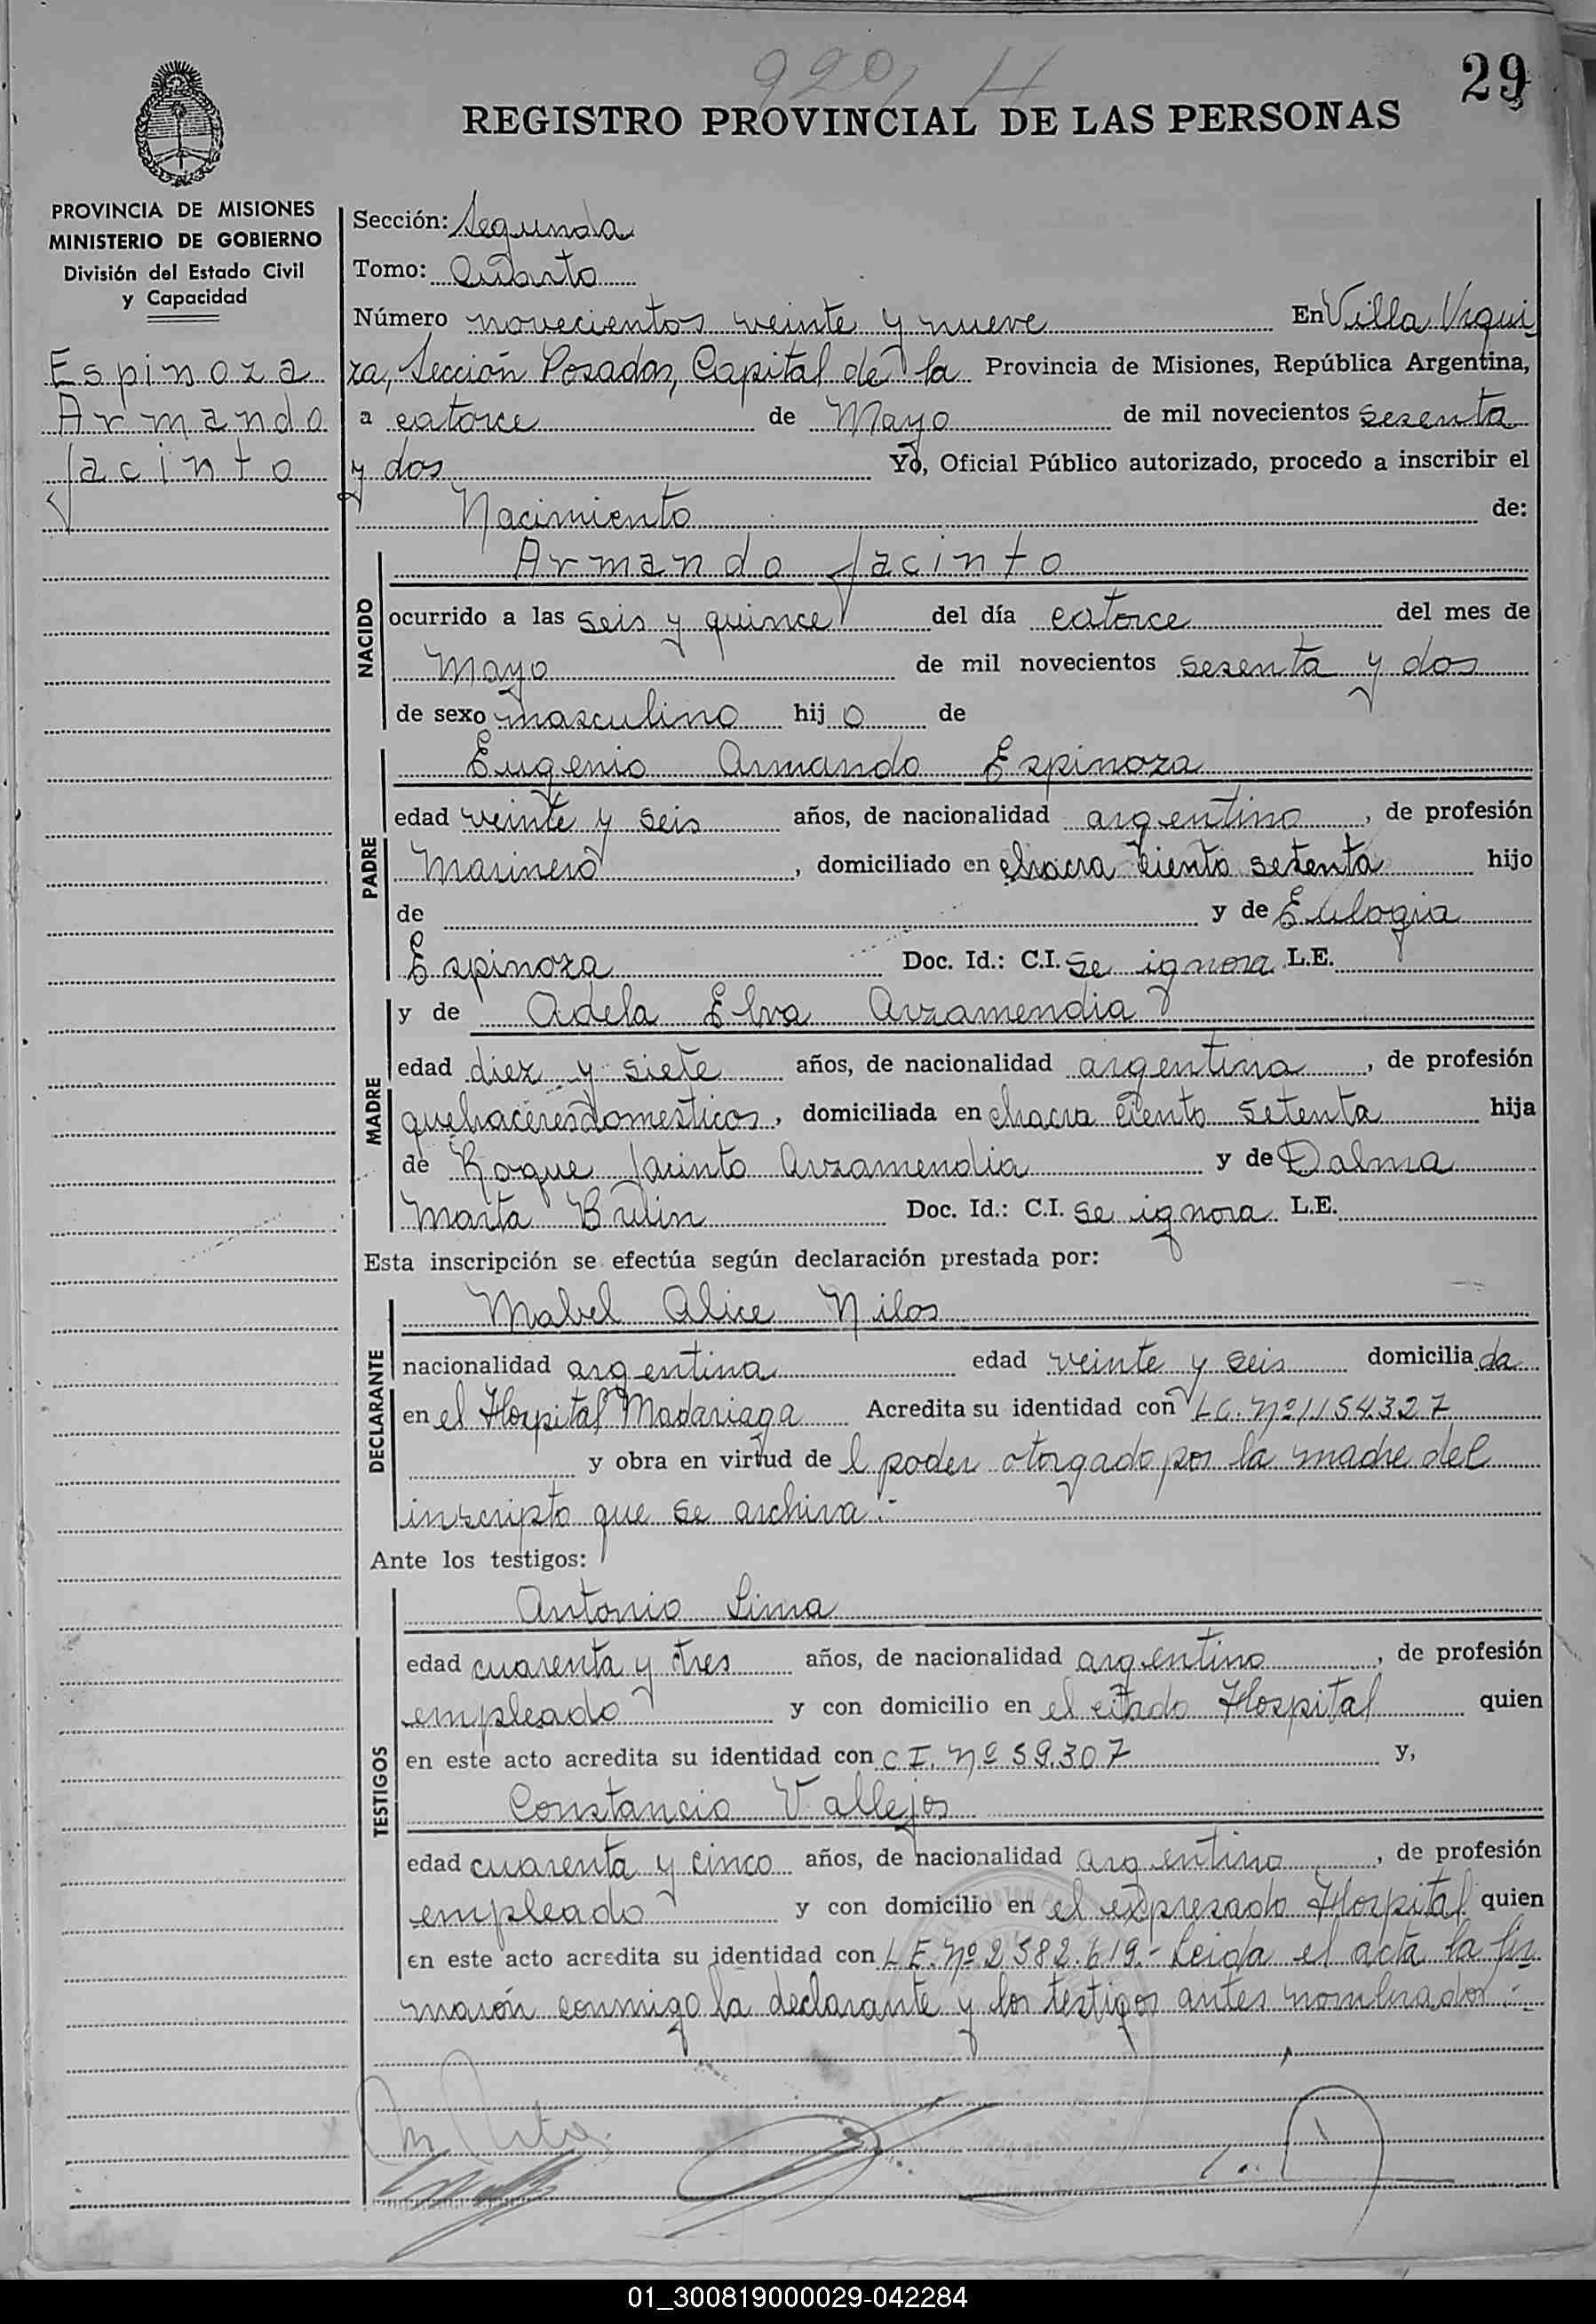 929 H
29
REGISTRO PROVINCIAL DE LAS PERSONAS
PROVINCIA DE MISIONES
MINISTERIO DE GOBIERNO
División del Estado Civil
y Capacidad
Espinoza
Armando
Jacinto
Sección: Segunda
Tomo: Cuarto
Número novecientos veinte y nueve En Villa Urqui
za, Sección Posadas, Capital de la Provincia de Misiones, República Argentina,
a catorce de Mayo de mil novecientos sesenta
y dos Yo, Oficial Público autorizado, procedo a inscribir el
Nacimiento de:
NACIDO
Armando Jacinto
ocurrido a las seis y quince del día catorce del mes de
Mayo de mil novecientos sesenta y dos
de sexo masculino hijo de
PADRE
Eugenio Armando Espinoza
edad veinte y seis años, de nacionalidad argentino, de profesión
Marinero, domiciliado en chacra ciento setenta hijo
de y de Eulogia
Espinoza Doc. Id.: C.I. se ignora L.E.
MADRE
y de Adela Elva Arzamendia
edad diez y siete años, de nacionalidad argentina, de profesión
quehaceres domesticos, domiciliada en chacra ciento setenta hija
de Roque Jacinto Arzamendia y de Dalma
Marta Doc. Id.: C.I. se ignora L.E.
Esta inscripción se efectúa según declaración prestada por:
DECLARANTE
Mabel Alice Nilos
nacionalidad argentina edad veinte y seis domiciliada
en el Hospital Madariaga Acredita su identidad con L C. Nº 1154327
y obra en virtud del poder otorgado por la madre del
inscripto que se archiva.-
Ante los testigos:
TESTIGOS
Antonio Lima
edad cuarenta y tres años, de nacionalidad argentino, de profesión
empleado y con domicilio en el citado Hospital quien
en este acto acredita su identidad con C I. Nº 59.307 y,
Constancio Vallejos
edad cuarenta y cinco años, de nacionalidad argentino, de profesión
empleado y con domicilio en el expresado Hospital quien
en este acto acredita su identidad con L E. Nº 2 582.619.- Leida el acta la fir
marón conmigo la declarante y los testigos antes nombrados.-
01_300819000029-042284